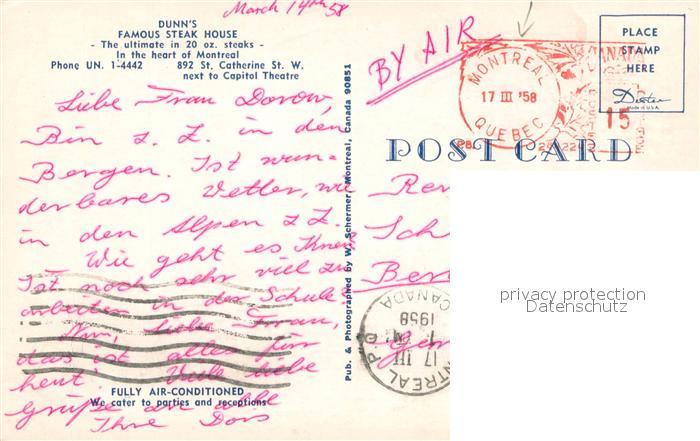 March 14th 58
DUNN'S
FAMOUS STEAK HOUSE
- The ultimate in 20 oz. steaks -
In the heart of Montreal
Phone UN. 1-4442 892 St. Catherine St. W.
next to Capitol Theatre
Liebe Frau Dorow,
Bin z. Z. in den
Bergen. Ist wun-
derbares Wetter, wie
in den Alpen z. Z.
Wie geht es Ihnen?
Ist noch sehr viel zu
arbeiten in der Schule
Nun, liebe Frau,
das ist alles für
heut. Viele liebe
Grüße an alle
Ihre Doris
FULLY AIR-CONDITIONED
We cater to parties and receptions
Pub. & Photographed by W. Schermer, Montreal, Canada 90851
BY AIR
MONTREAL
17 III '58
QUEBEC
CANADA
15
PLACE
STAMP
HERE
Dexter
MADE IN U.S.A.
POST CARD
Ber
privacy protection
Datenschutz
MONTREAL P.Q.
17 III
1958
CANADA